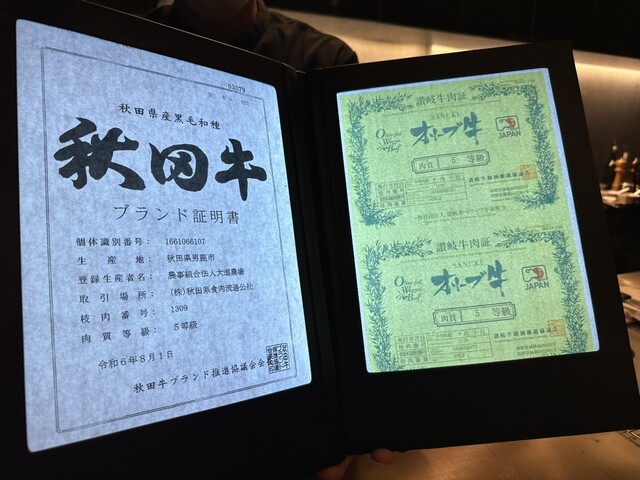 02079
秋田県産黒毛和種
秋田牛
ブランド証明書
個体識別番号： 1661066107
生産地： 秋田県男鹿市
登録生産者名： 農事組合法人大進農場
取引場所： (株)秋田県食肉流通公社
枝肉番号： 1309
肉質等級： 5等級
令和6年8月1日
秋田牛ブランド推進協議会
讃岐牛肉証
SANUKI
Olive-fed Wagyu Beef
オリーブ牛
JAPAN
肉質 5 等級
讃岐牛銘柄推進協議会
讃岐牛肉証
SANUKI
Olive-fed Wagyu Beef
オリーブ牛
JAPAN
肉質 5 等級
讃岐牛銘柄推進協議会